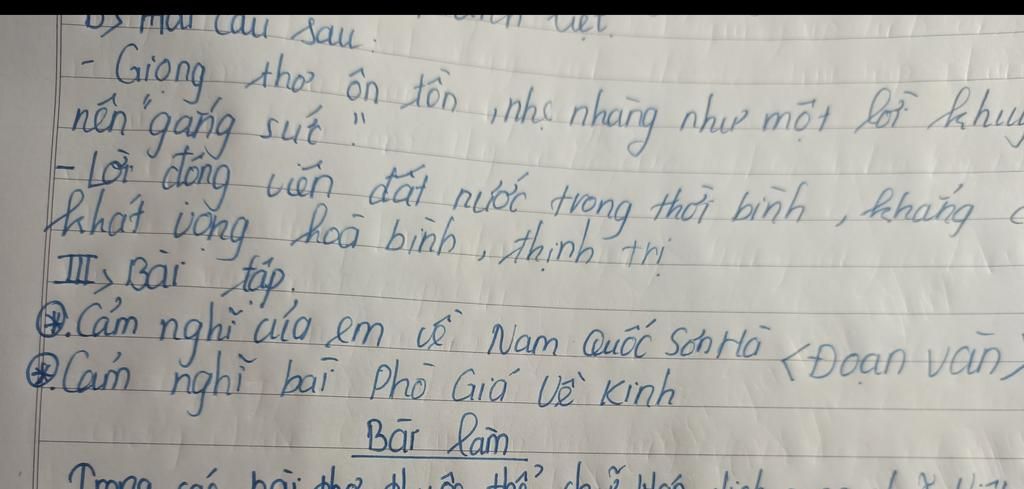 b, hai câu sau:
- Giọng thơ ôn tồn, nhẹ nhàng như một lời khuy
nên "gắng sức"
- Lời động viên đất nước trong thời bình, khẳng
khát vọng hoà bình, thịnh trị
III, Bài tập.
*. Cảm nghĩ của em về Nam Quốc Sơn Hà <Đoạn văn>
*. Cảm nghĩ bài Phò Giá Về Kinh
Bài làm
Trong các bài thơ